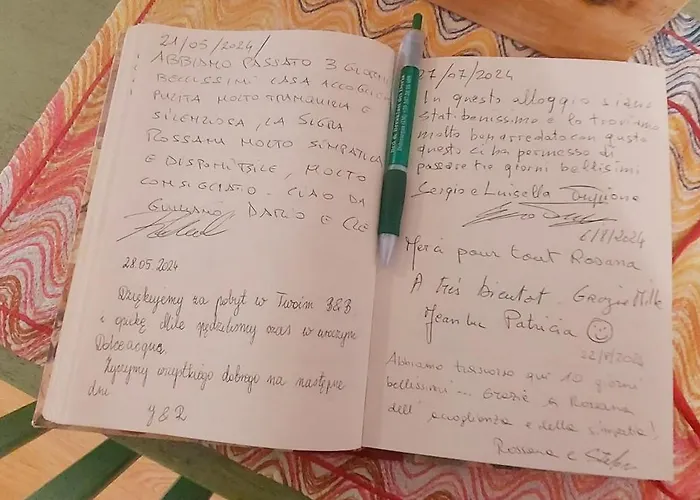 21/05/2024/
ABBIAMO PASSATO 3 GIORNI
BELLISSIMI CASA ACCOGLIEN
PULITA MOLTO TRANQUILLA E
SILENZIOSA, LA SIG.RA
ROSSANA MOLTO SIMPATICA
E DISPONIBILE, MOLTO
CONSIGLIATO. CIAO DA
GIULIANO, DARIO E
28.05.2024
Dziękujemy za pobyt w Twoim B&B
i opiekę. Miło spędziliśmy czas w uroczym
Dolceacqua.
Życzymy wszystkiego dobrego na następne
dni
J & R
27/07/2024
In questo alloggio siamo
stati benissimo e lo troviamo
molto ben arredato con gusto
questo ci ha permesso di
passare tre giorni bellissimi
Sergio e Luisella
6/8/2024
Merci pour tout Rosana
A très bientot. Grazie Mille
Jean Luc Patricia
22/8/2024
Abbiamo trascorso qui 10 giorni
bellissimi... Grazie a Rosana
dell'accoglienza e della simpatia!
Rossana e